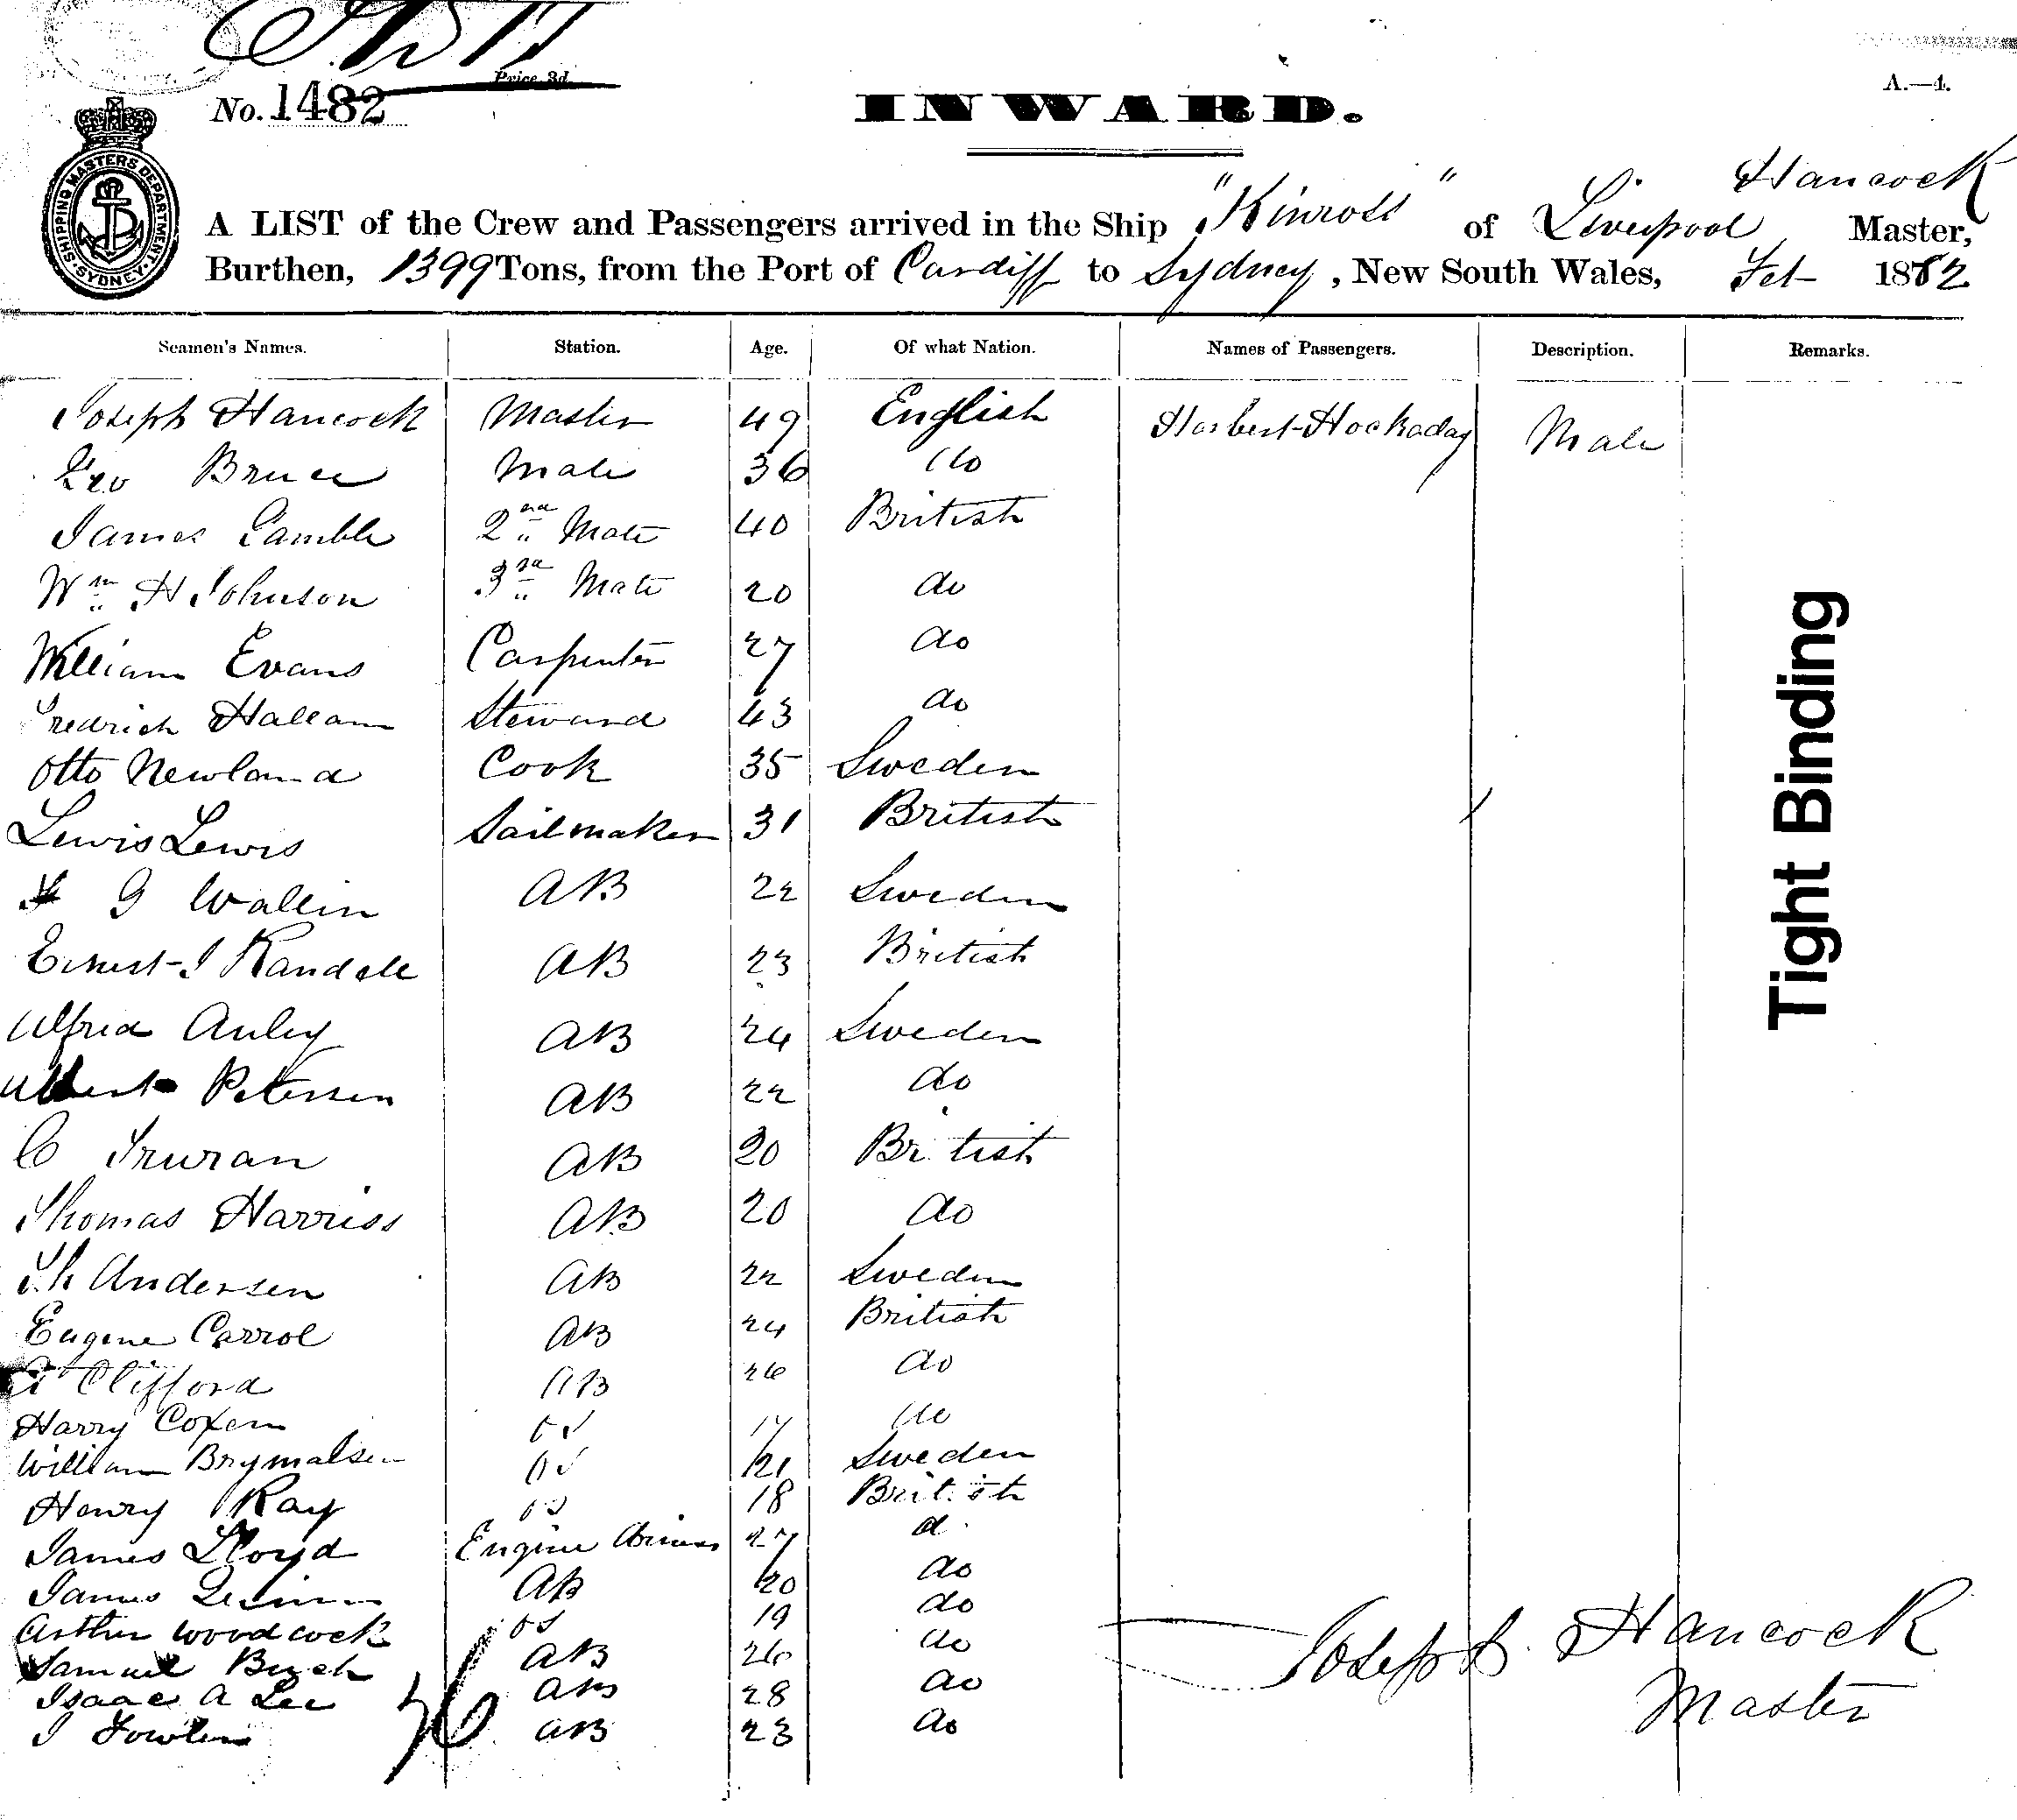 Price 3d.
No. 1482
INWARD.
A.—4.
SHIPPING MASTERS DEPARTMENT. SYDNEY.
Hancock
A LIST of the Crew and Passengers arrived in the Ship "Kinross" of Liverpool, Master,
Burthen, 1399 Tons, from the Port of Cardiff to Sydney, New South Wales, Feb 1882
Seamen's Names. Station. Age. Of what Nation. Names of Passengers. Description. Remarks.
Joseph Hancock Master 49 English Herbert Hockaday Male
Geo Bruce Mate 36 do
James Gamble 2nd Mate 40 British
Wm H Johnson 3rd Mate 20 do
William Evans Carpenter 27 do
Fredrich Hallam Steward 43 do
Otto Newland Cook 35 Sweden
Lewis Lewis Sailmaker 31 British
G Wallin AB 22 Sweden
Ernest J Randell AB 23 British
Alfred Auley AB 24 Sweden
Albert Petersen AB 22 do
C Truran AB 20 British
Thomas Harriss AB 20 do
Th Andersen AB 22 Sweden
Eugene Carrol AB 24 British
Clifford AB 26 do
Harry Coxen OS 17 do
William Brymalsen OS 21 Sweden
Henry Ray OS 18 British
James Lloyd Engine driver 27 d
James Quinn AB 20 do
Arthur Woodcock OS 19 do
Samuel Buck AB 26 do
Isaac A Lee AB 28 do
J Fowler AB 23 do
26
Joseph Hancock
Master
Tight Binding